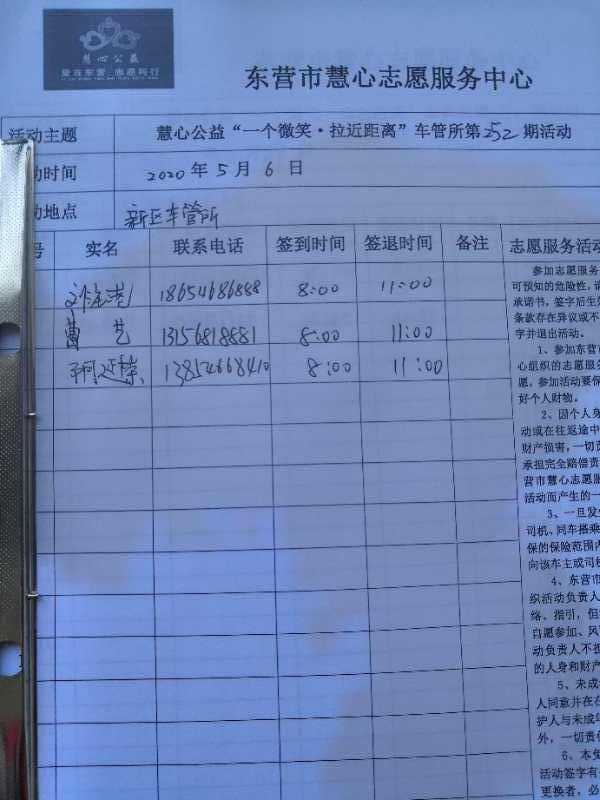 慧心公益
爱在东营 志愿同行
东营市慧心志愿服务中心
活动主题 慧心公益“一个微笑·拉近距离”车管所第252期活动
动时间 2020年5月6日
动地点 新区车管所
号 实名 联系电话 签到时间 签退时间 备注 志愿服务活动
18654686888 8:00 11:00
艺 13156818881 8:00 11:00
13854668410 8:00 11:00
参加志愿服务
可预知的危险性,请
承诺书,签字后生效
条款存在异议或不
字并退出活动。
1、参加东营市
心组织的志愿服务
愿,参加活动要保
好个人财物。
2、因个人身
动或在往返途中
财产损害,一切责
承担完全赔偿责
营市慧心志愿服
活动而产生的一
3、一旦发生
司机、同车搭乘
保的保险范围内
向该车主或司机
4、东营市
织活动负责人
络、指引,但
自愿参加、风
动负责人不担
的人身和财产
5、未成年
人同意并在在
护人与未成年
外,一切责任
6、本免
活动签字有
更换者,必